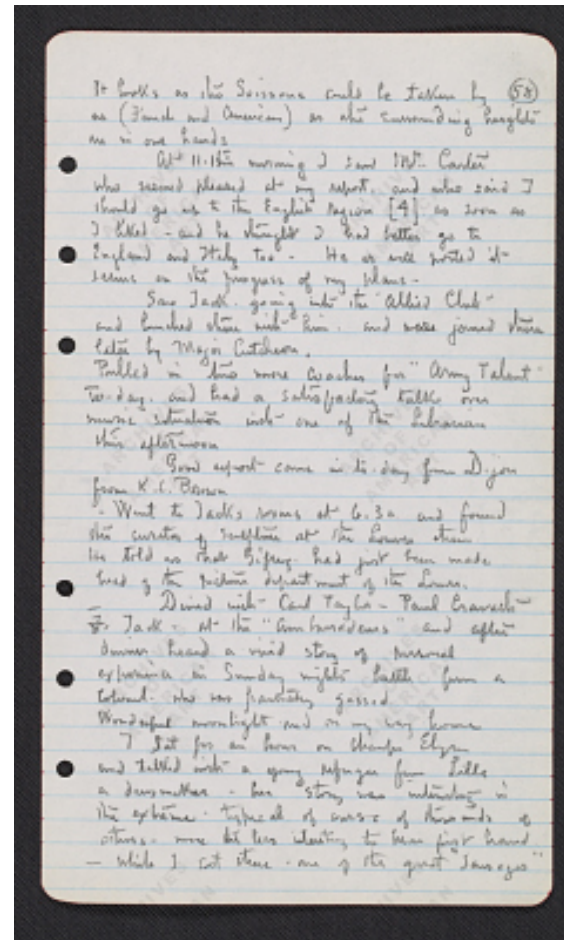 It looks as tho Soissons could be taken by (58)
us (French and American) as the surrounding heights
are in our hands
At 11. this morning I saw Mr. Carter
who seemed pleased at my report. and who said I
should go up to the English region [4] as soon as
I liked - and he thought I had better go to
England and Italy too - He is well posted it
seems on the progress of my plans -
Saw Jack. going into the "Allied Club"
and lunched there with him. and were joined there
later by Major Cutcheon.
Pulled in two more coaches for "Army Talent"
to-day. and had a satisfactory talk over
music situation with one of the Librarian
this afternoon
Good report came in to-day from Dijon
from K. C. Brown
- Went to Jack's rooms at 6.30 and found
the curator of sculpture at the Louvre there
he told us that had just been made
head of the picture department of the Louvre.
Dined with Carl Taylor - Paul
Jack - at the "Ambassadeurs" and after
dinner heard a vivid story of personal
experience in Sunday nights battle from a
Colonel. who was gassed
Wonderful moonlight and on my way home
I sat for an hour on Champs Elysees
and talked with a young refugee from Lille
a dressmaker - her story was interesting in
the extreme. typical of course of thousands of
others. none the less interesting to hear first hand
- while I sat there. one of the great "Sausages"